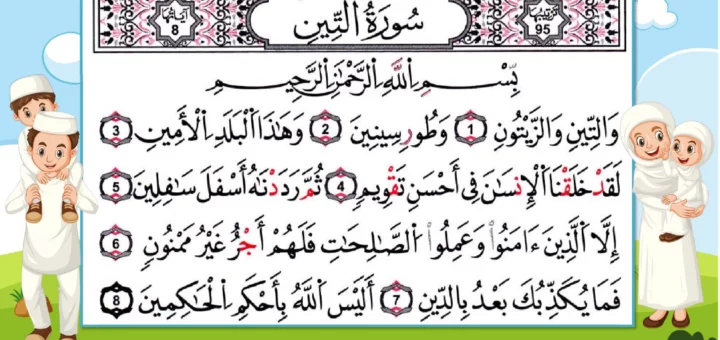 ترتيبها 95 سُورَةُ التِّينِ آياتها 8
بِسْمِ اللَّهِ الرَّحْمَٰنِ الرَّحِيمِ
وَالتِّينِ وَالزَّيْتُونِ 1 وَطُورِ سِينِينَ 2 وَهَٰذَا الْبَلَدِ الْأَمِينِ 3
لَقَدْ خَلَقْنَا الْإِنسَٰنَ فِي أَحْسَنِ تَقْوِيمٍ 4 ثُمَّ رَدَدْنَٰهُ أَسْفَلَ سَٰفِلِينَ 5
إِلَّا الَّذِينَ ءَامَنُوا وَعَمِلُوا الصَّٰلِحَٰتِ فَلَهُمْ أَجْرٌ غَيْرُ مَمْنُونٍ 6
فَمَا يُكَذِّبُكَ بَعْدُ بِالدِّينِ 7 أَلَيْسَ اللَّهُ بِأَحْكَمِ الْحَٰكِمِينَ 8